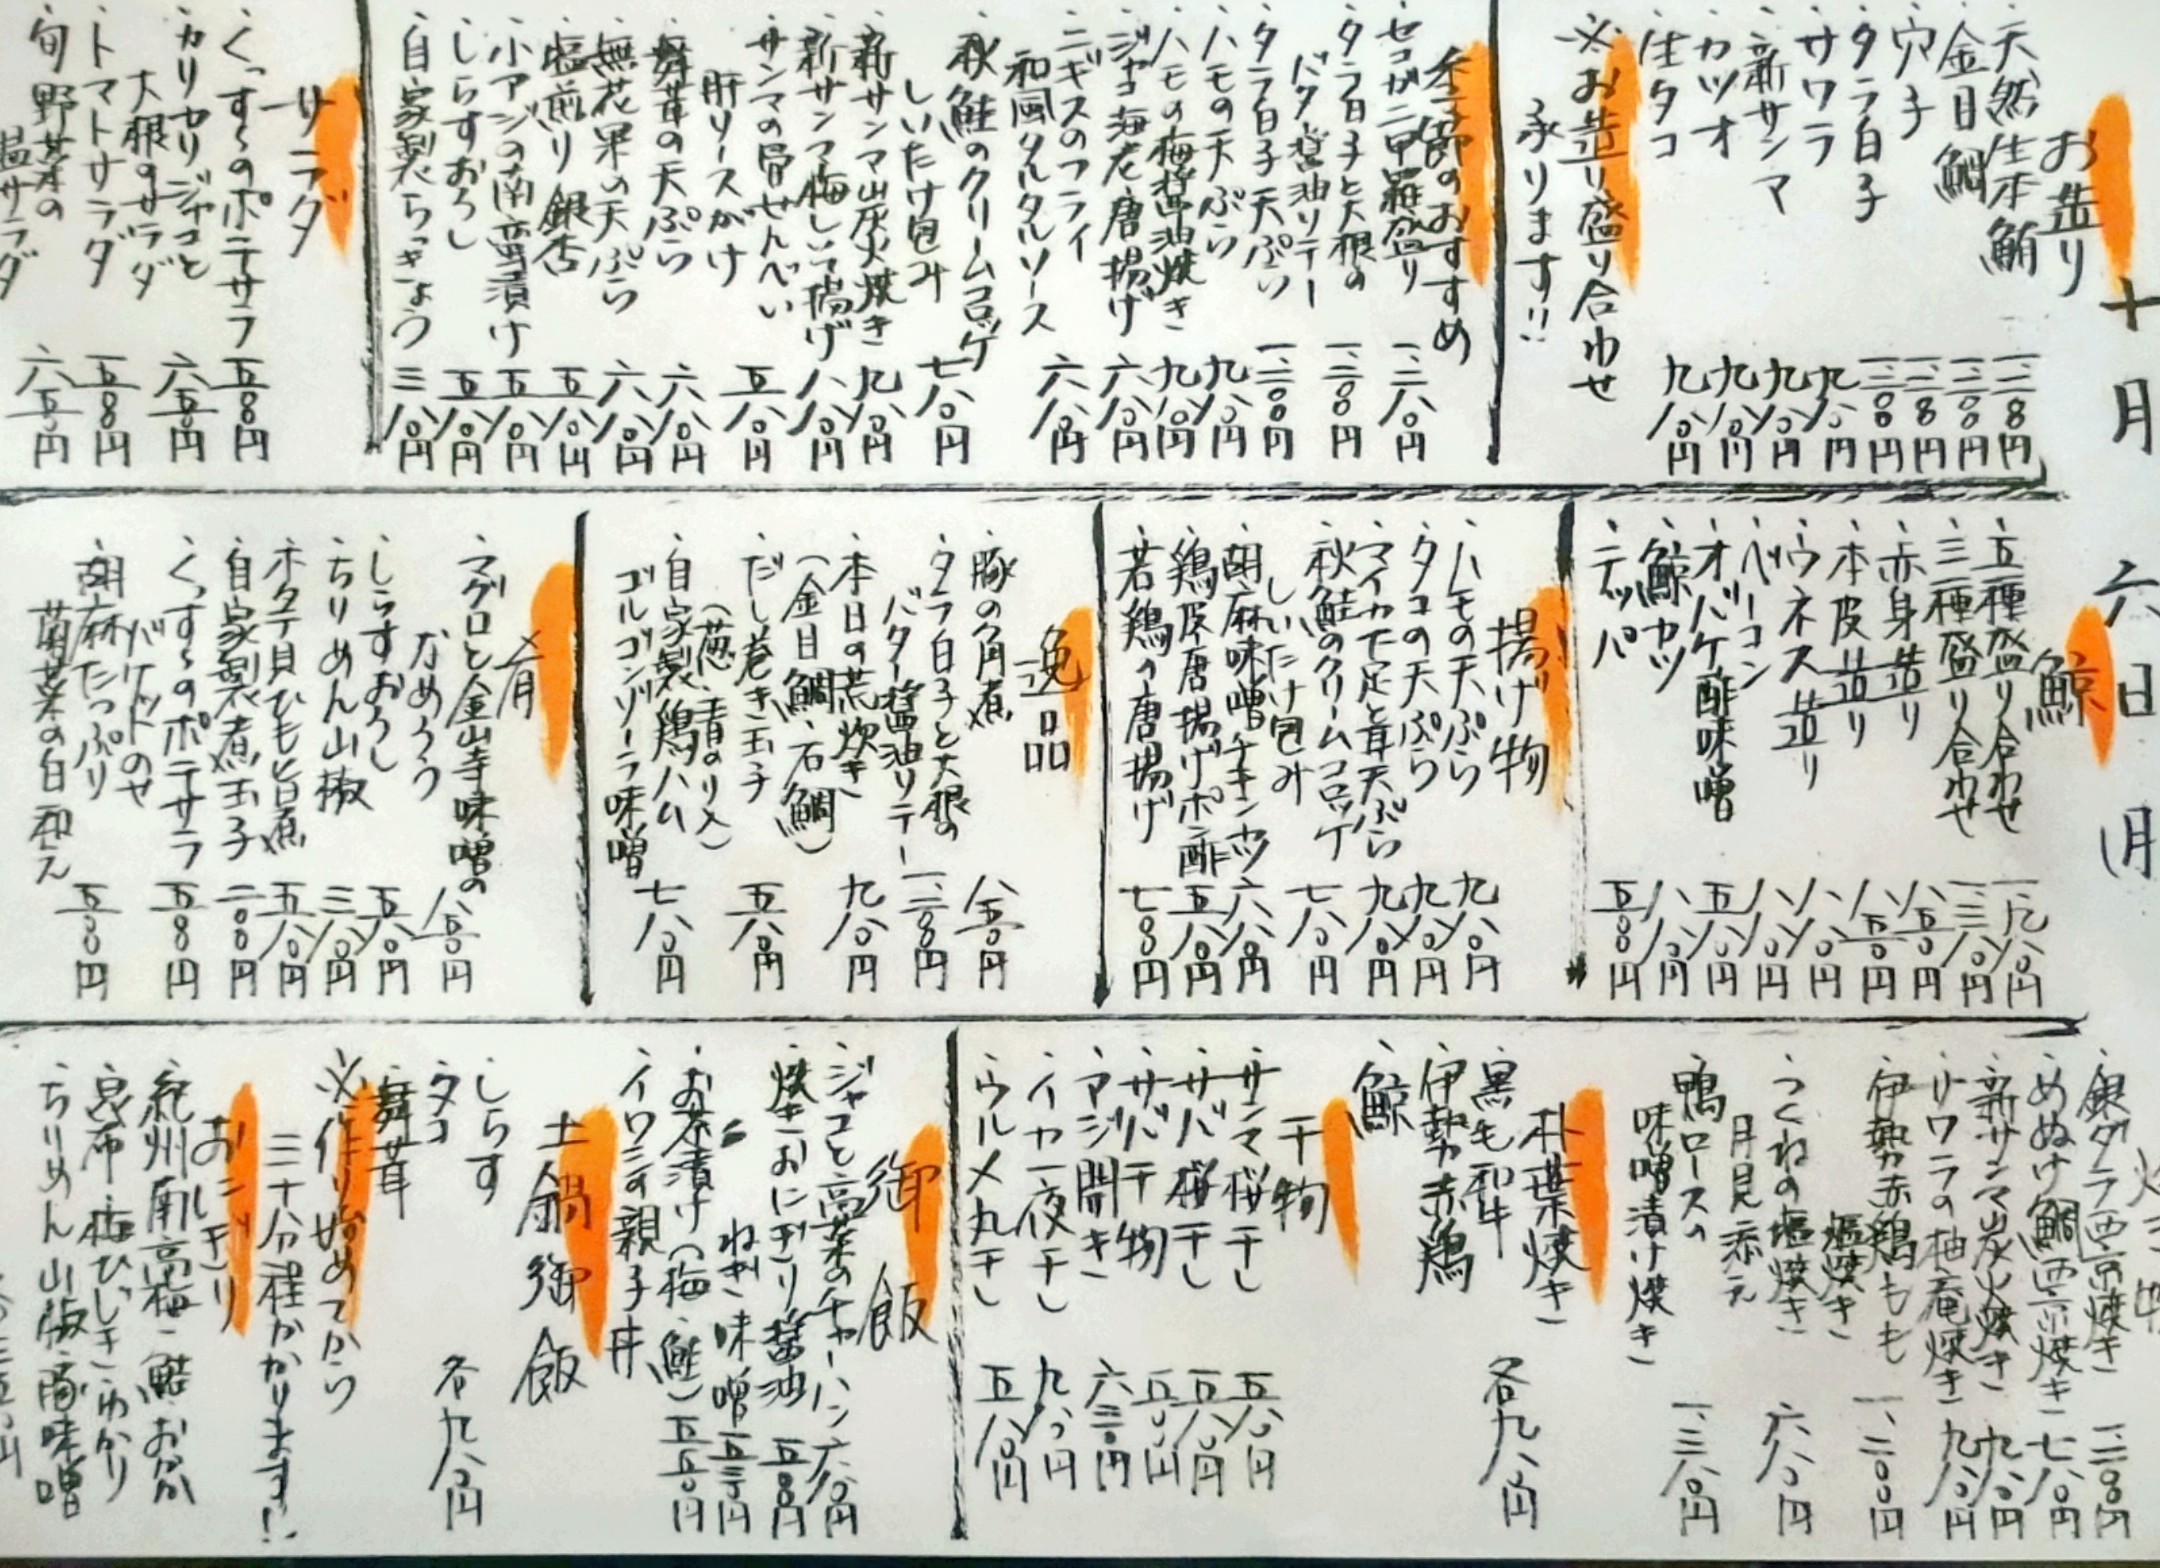 十月 六日 月
お造り
・天然生本鮪 一、二八〇円
・金目鯛 一、二〇〇円
・穴子 一、二八〇円
・タラ白子 一、二〇〇円
・サワラ 九八〇円
・新サンマ 九八〇円
・カツオ 九八〇円
・生タコ 九八〇円
※お造り盛り合わせ
承ります!!
季節のおすすめ
・セコガニ甲羅盛り 一、二八〇円
・タラ白子と大根の
バター醤油ソテー 一、二〇〇円
・タラ白子天ぷら 一、二〇〇円
・ハモの天ぷら 九八〇円
・ハモの梅醤油焼き 九八〇円
・ジャコ海老唐揚げ 六八〇円
・ニギスのフライ
和風タルタルソース 六八〇円
・秋鮭のクリームコロッケ
しいたけ包み 七八〇円
・新サンマ炭火焼き 九八〇円
・新サンマ梅しそ揚げ 八八〇円
・サンマの骨せんべい
肝ソースがけ 五八〇円
・舞茸の天ぷら 六八〇円
・無花果の天ぷら 六八〇円
・塩煎り銀杏 五八〇円
・小アジの南蛮漬け 五八〇円
・しらすおろし 五八〇円
・自家製らっきょう 三八〇円
サラダ
・くっすぅのポテサラ 五八〇円
・カリカリジャコと
大根のサラダ 六五〇円
・トマトサラダ 五八〇円
・旬野菜の
温サラダ 六五〇円
鯨
・五種盛り合わせ
・三種盛り合わせ 一、三八〇円
・赤身造り 八五〇円
・本皮造り 八五〇円
・ウネス造り 八八〇円
・ベーコン 八八〇円
・オバケ酢味噌 五八〇円
・鯨カツ 八八〇円
・テッパ 五八〇円
揚げ物
・ハモの天ぷら 九八〇円
・タコの天ぷら 九八〇円
・マイカ下足と茸天ぷら 九八〇円
・秋鮭のクリームコロッケ
しいたけ包み 七八〇円
・胡麻味噌チキンカツ 六八〇円
・鶏皮唐揚げポン酢 五八〇円
・若鶏の唐揚げ 七八〇円
逸品
・豚の角煮 八五〇円
・タラ白子と大根の
バター醤油ソテー 一、二〇〇円
・本日の荒炊き
(金目鯛、石鯛) 九八〇円
・だし巻き玉子
(葱、青のり入) 五八〇円
・自家製鶏ハム
ゴルゴンゾーラ味噌 七八〇円
肴
・マグロと金山寺味噌の
なめろう 八五〇円
・しらすおろし 五八〇円
・ちりめん山椒 三八〇円
・ホタテ貝ひも旨煮 五八〇円
・自家製煮玉子 二〇〇円
・くっすぅのポテサラ
バケットのせ 五八〇円
・胡麻たっぷり
菊菜の白和え 五八〇円
・銀ダラ西京焼き 一、二〇〇円
・めぬけ鯛西京焼き 七八〇円
・新サンマ炭火焼き 九八〇円
・サワラの柚庵焼き 九八〇円
・伊勢赤鶏もも
塩焼き 一、二〇〇円
・つくねの塩焼き
月見添え 六八〇円
・鴨ロースの
味噌漬け焼き 一、三八〇円
朴葉焼き
・黒毛和牛
・伊勢赤鶏
・鯨 各九八〇円
干物
・サンマ桜干し 五八〇円
・サバ桜干し 五八〇円
・サバ干物 五八〇円
・アジ開き 六三〇円
・イカ一夜干し 九八〇円
・ウルメ丸干し 五八〇円
御飯
・ジャコと高菜のチャーハン 六八〇円
・焼きおにぎり 醤油 五〇〇円
ねぎ味噌 五三〇円
・お茶漬け(梅、鮭) 五五〇円
・イワシの親子丼
土鍋御飯
・しらす
・タコ
・舞茸 各九八〇円
※作り始めてから
三十分程かかります!!
おにぎり
・紀州南高梅・鮭・おかか
・昆布・梅ひじき・ゆかり
・ちりめん山椒・豚味噌